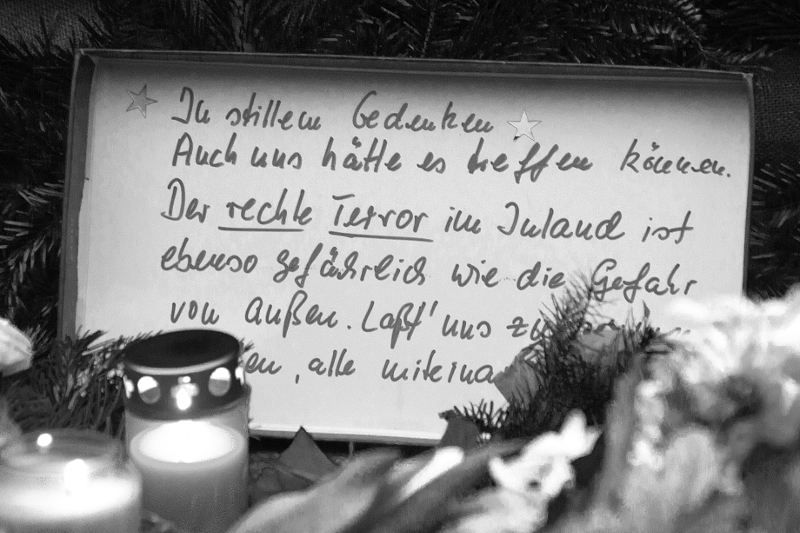 In stillem Gedenken
Auch uns hätte es treffen können.
Der rechte Terror im Inland ist
ebenso gefährlich wie die Gefahr
von außen. Laßt' uns
, alle